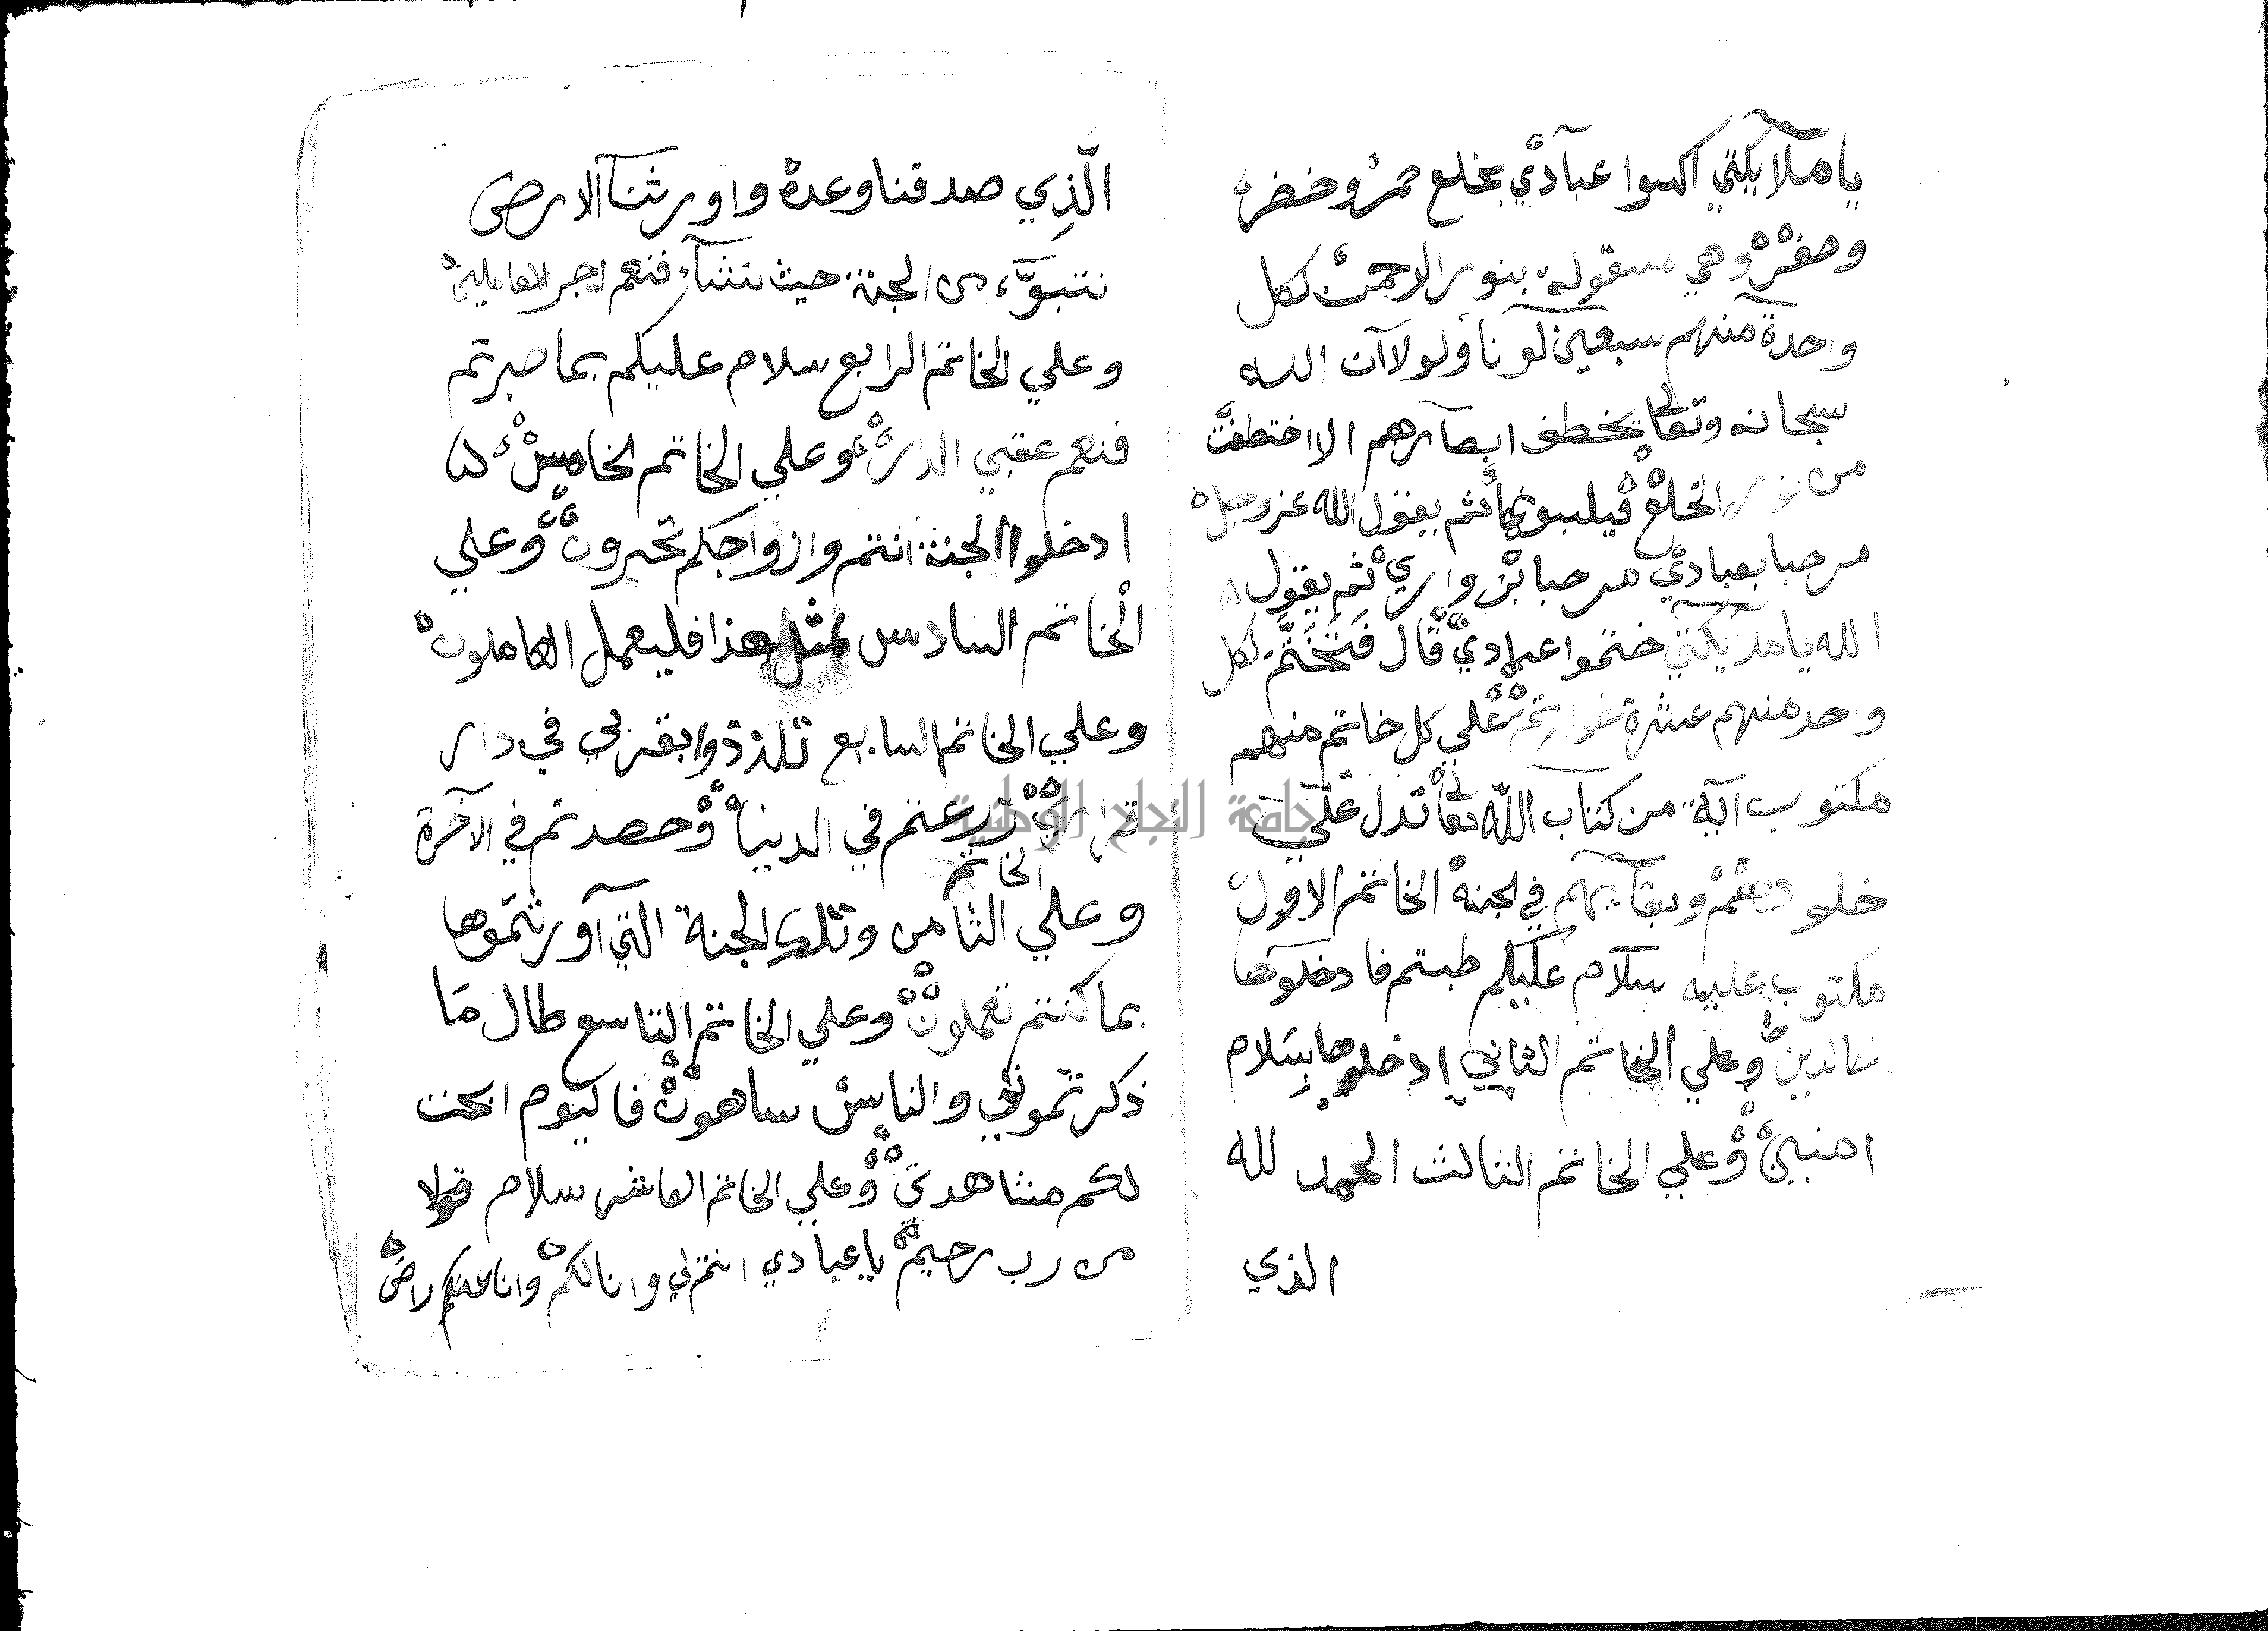 يا ملآيكتي اكسوا عبآدي بخلع حمر وخضر
وصفر وهي مسقولة بنور الرحمن لكل
واحدة منهم سبعين لونا ولولا آن الله
سبحانه وتعالى يخطف ابصآرهم الا اختطفت
من نور الخلع فيلبسونها ثم يقول الله عز وجل
مرحبا بعبادي مرحبا بزواري ثم يقول
الله يا ملآيكتي ختموا عبادي قال فتختم لكل
واحد منهم عشرة خواتم علي كل خاتم منهم
مكتوب آية من كتاب الله تعالى تدل علي
خلودهم وبقآيهم في الجنة الخاتم الاول
مكتوب عليه سلآم عليكم طبتم فادخلوها
خالدين وعلي الخاتم الثاني ادخلوها بسلام
امنين وعلي الخاتم الثالث الحمد لله
الذي
الّذِي صدقنا وعده واورثنآ الارض
نتبوّء من الجنة حيث نشآء فنعم اجر العاملين
وعلي الخاتم الرابع سلام عليكم بما صبرتم
فنعم عقبي الدار وعلي الخاتم الخامس
ادخلوا الجنة انتم وازواجكم تحبرون وعلي
الخاتم السادس لمثل هذا فليعمل العاملون
وعلي الخاتم السابع تلذذوا بقربي في دار
قراري زرعتم في الدنيا وحصدتم في الآخرة
الخاتم
وعلي الثامن وتلك الجنة التي آورثتموها
بما كنتم تعملون وعلي الخاتم التاسع طال مَا
ذكرتموني والناس ساهون فاليوم ابحت
لكم مشاهدتي وعلي الخاتم العاشر سلام قولا
من رب رحيم يا عبادي انتم لي وانا لكم وانا عنكم راض
جامعة النجاح الوطنية